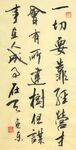 一切要靠經營才
會有所建樹但謀
事在人成
在天